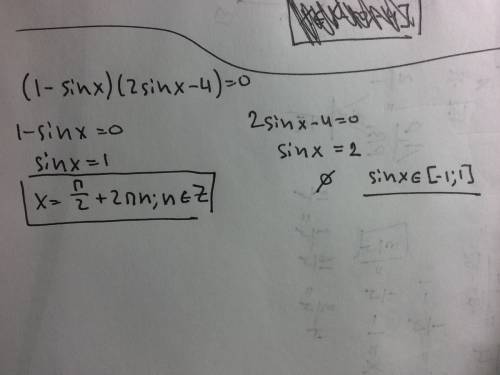 (1-sinx)(2sinx-4)=0
1-sinx=0
sinx=1
x=π/2+2πn; n∈Z
2sinx-4=0
sinx=2
∅ sinx∈[-1;1]